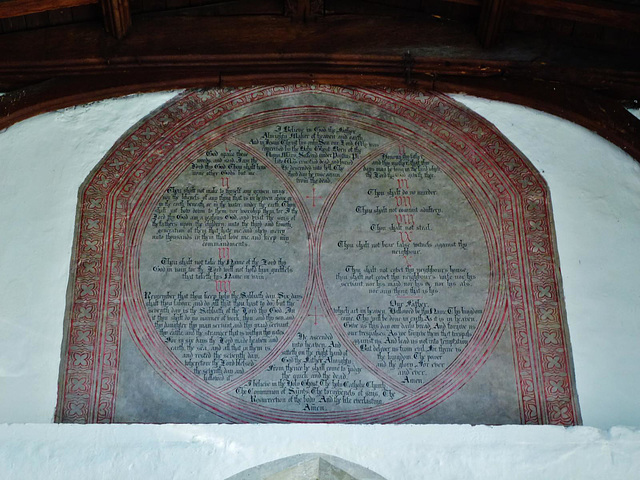 I Believe in God the Father
Almighty Maker of heaven and earth.
And in Jesus Christ his only Son our Lord, Who was
conceived by the Holy Ghost Born of the
Virgin Mary, Suffered under Pontius
was crucified dead and buried
He descended into hell, The
third day he rose again
from the dead.
He ascended
into heaven, And
sitteth on the right hand of
God the Father Almighty.
From thence he shall come to judge
the quick and the dead.
I believe in the Holy Ghost. The holy Catholic Church
The Communion of Saints, The forgiveness of sins, The
Resurrection of the body, And the life everlasting
Amen.
God spake these
words, and said, I am the
Lord thy God Thou shalt have
none other Gods but me.
Thou shalt not make to thyself any graven image
nor the likeness of any thing that is in heaven above or
in the earth beneath, or in the water under the earth. Thou
shalt not bow down to them, nor worship them, for I the
Lord thy God am a jealous God, and visit the sins of
the fathers upon the children, unto the third and fourth
generation of them that hate me, and shew mercy
unto thousands in them that love me, and keep my
commandments.
Thou shalt not take the Name of the Lord thy
God in vain, for the Lord will not hold him guiltless
that taketh his Name in vain.
Remember that thou keep holy the Sabbath day. Six days
shalt thou labour, and do all that thou hast to do, but the
seventh day is the Sabbath of the Lord thy God. In
it thou shalt do no manner of work, thou, and thy son, and
thy daughter, thy man servant, and thy maid servant,
thy cattle, and the stranger that is within thy gates.
For in six days the Lord made heaven and
earth, the sea, and all that in them is,
and rested the seventh day,
wherefore the Lord blessed
the seventh day, and
hallowed it.
Honour thy
Thou shalt do no murder.
Thou shalt not commit adultery.
Thou shalt not steal.
Thou shalt not bear false witness against thy
neighbour.
Thou shalt not covet thy neighbour's house
thou shalt not covet thy neighbour's wife, nor his
servant, nor his maid, nor his ox, nor his ass,
nor any thing that is his.
Our Father,
which art in heaven, Hallowed be thy Name. Thy kingdom
come. Thy will be done in earth, As it is in heaven.
Give us this day our daily bread. And forgive us
our trespasses, As we forgive them that trespass
against us. And lead us not into temptation,
But deliver us from evil, For thine is
the kingdom, The power
and the glory, For ever
and ever.
Amen.